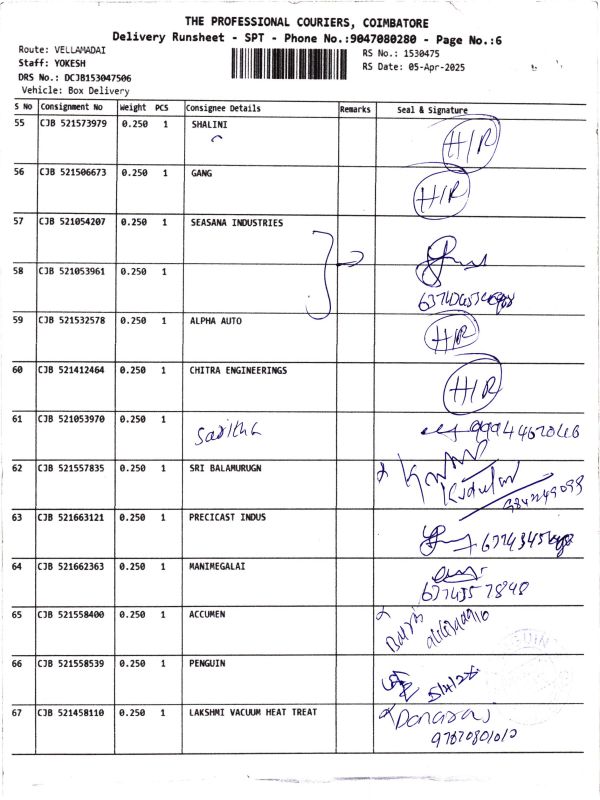 THE PROFESSIONAL COURIERS, COIMBATORE
Delivery Runsheet - SPT - Phone No.:9047080280 - Page No.:6
Route: VELLAMADAI
Staff: YOKESH
DRS No.: DCJB153047506
Vehicle: Box Delivery
RS No.: 1530475
RS Date: 05-Apr-2025
S No Consignment No Weight PCS Consignee Details Remarks Seal & Signature
55 CJB 521573979 0.250 1 SHALINI H/R
56 CJB 521506673 0.250 1 GANG H/R
57 CJB 521054207 0.250 1 SEASANA INDUSTRIES
58 CJB 521053961 0.250 1
59 CJB 521532578 0.250 1 ALPHA AUTO H/R
60 CJB 521412464 0.250 1 CHITRA ENGINEERINGS H/R
61 CJB 521053970 0.250 1 Saritha
62 CJB 521557835 0.250 1 SRI BALAMURUGN
63 CJB 521663121 0.250 1 PRECICAST INDUS
64 CJB 521662363 0.250 1 MANIMEGALAI
6374357848
65 CJB 521558400 0.250 1 ACCUMEN
66 CJB 521558539 0.250 1 PENGUIN
5/4/25
67 CJB 521458110 0.250 1 LAKSHMI VACUUM HEAT TREAT